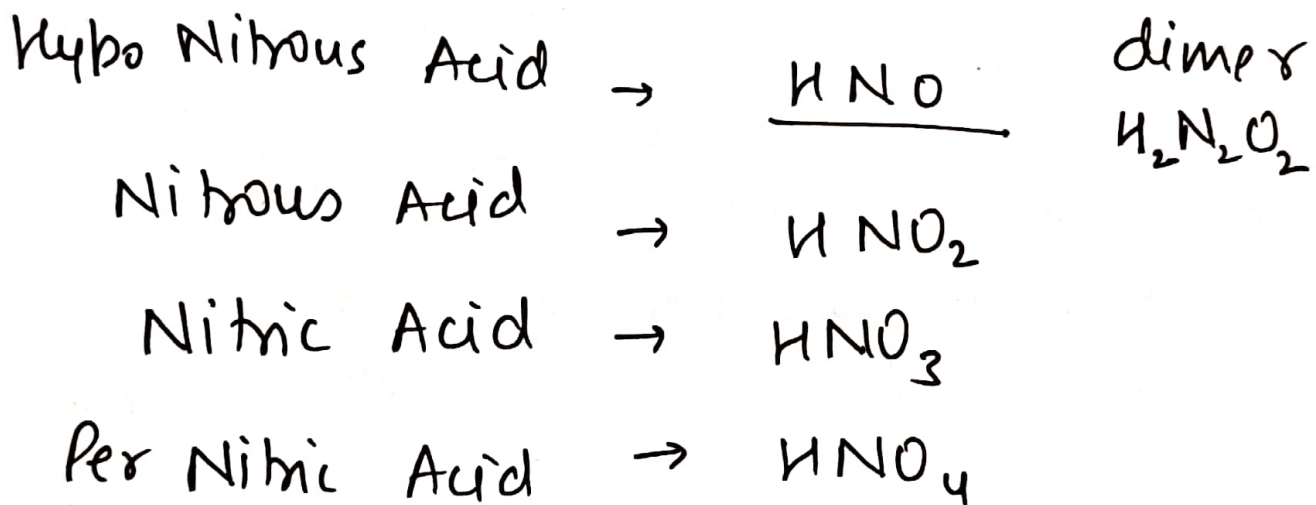 Hypo Nitrous Acid → HNO dimer
H₂N₂O₂
Nitrous Acid → HNO₂
Nitric Acid → HNO₃
Per Nitric Acid → HNO₄